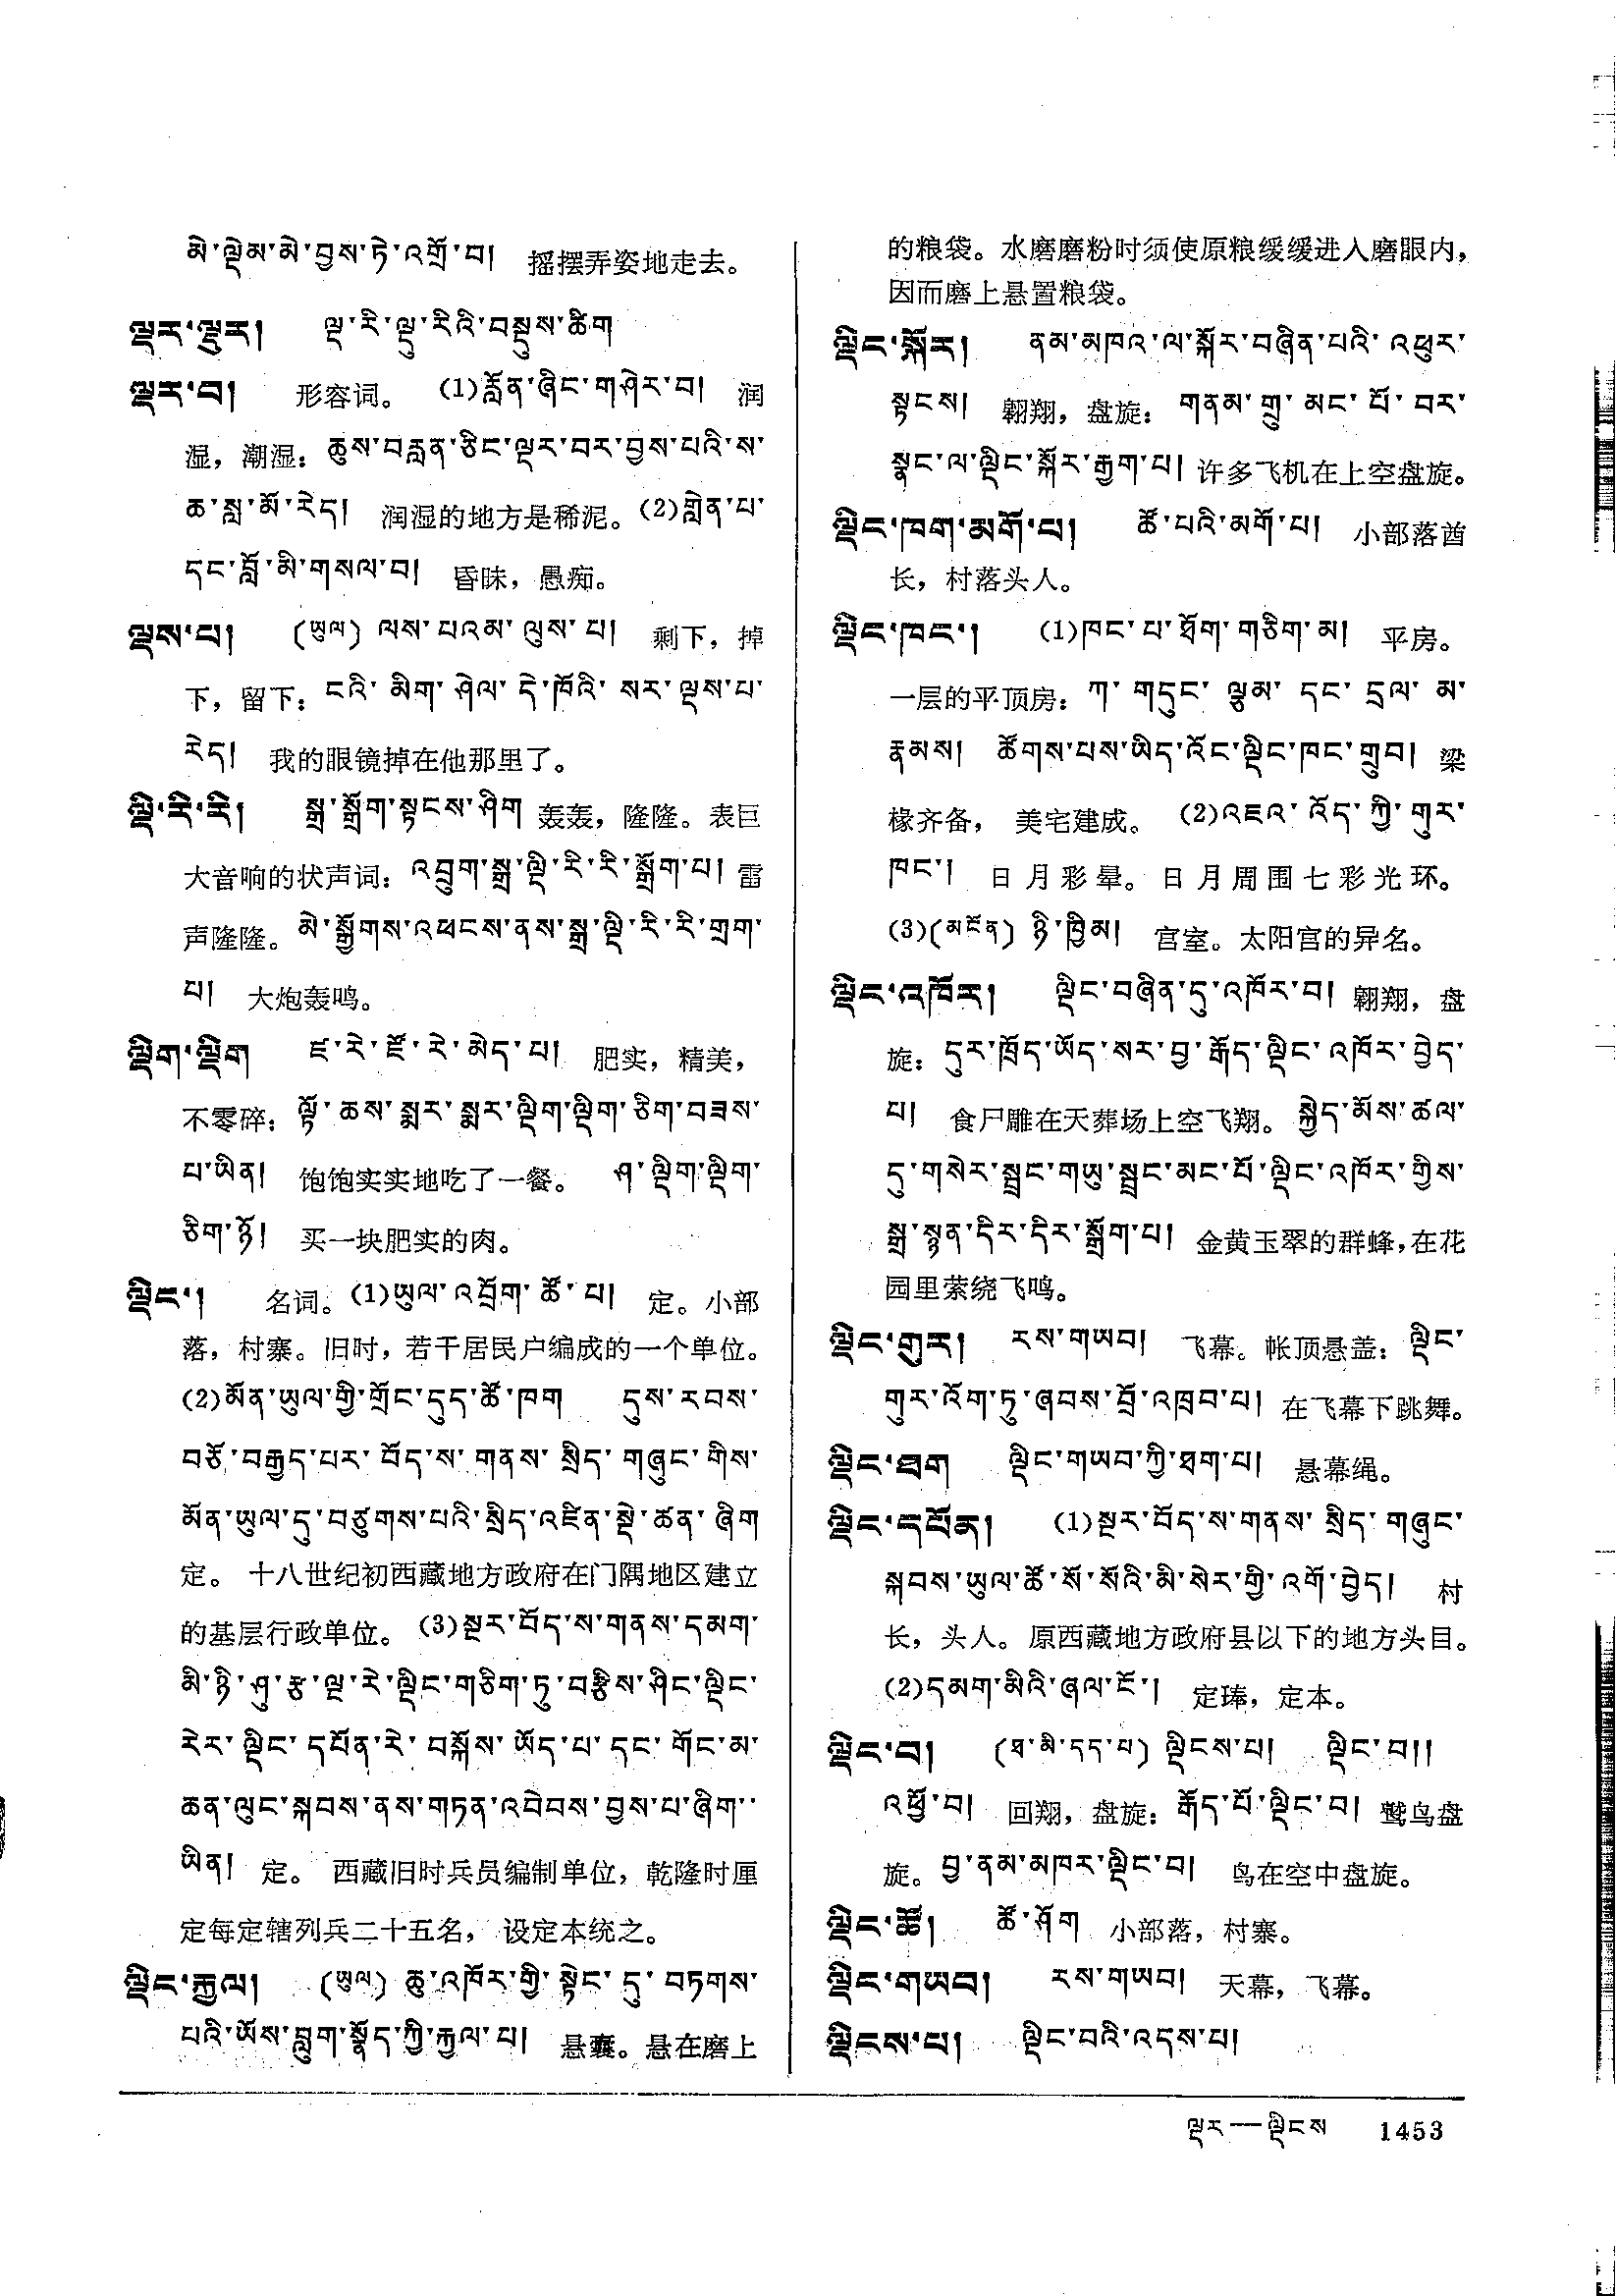 མེ་ལྡེམ་མེ་བྱས་ཏེ་འགྲོ་བ། 摇摆弄姿地走去。
ལྡར་ལྡུར། ལྡ་རི་ལྡུ་རིའི་བསྡུས་ཚིག
ལྡར་བ། 形容词。 (1)རློན་ཞིང་གཤེར་བ། 润
湿，潮湿：ཆུས་བརླན་ཅིང་ལྡར་བར་བྱས་པའི་ས་
ཆ་སླ་མོ་རེད། 润湿的地方是稀泥。(2)གླེན་པ་
དང་བློ་མི་གསལ་བ། 昏昧，愚痴。
ལྡས་པ། (ཡུལ) ལས་པའམ་ལུས་པ། 剩下，掉
下，留下：ངའི་མིག་ཤེལ་དེ་ཁོའི་སར་ལྡས་པ་
རེད། 我的眼镜掉在他那里了。
ལྡི་རི་རི། སྒྲ་སྒྲོག་སྟངས་ཤིག 轰轰，隆隆。表巨
大音响的状声词：འབྲུག་སྒྲ་ལྡི་རི་རི་སྒྲོག་པ། 雷
声隆隆。མེ་སྒྱོགས་འཕངས་ནས་སྒྲ་ལྡི་རི་རི་གྲག་
པ། 大炮轰鸣。
ལྡིག་ལྡིག ཇ་རེ་ཇོ་རེ་མེད་པ། 肥实，精美，
不零碎：ལྟོ་ཆས་སྨར་སྨར་ལྡིག་ལྡིག་ཅིག་བཟས་
པ་ཡིན། 饱饱实实地吃了一餐。 ཤ་ལྡིག་ལྡིག་
ཅིག་ཉོ། 买一块肥实的肉。
ལྡིང་། 名词。(1)ཡུལ་འབྲོག་ཚོ་པ། 定。小部
落，村寨。旧时，若干居民户编成的一个单位。
(2)མོན་ཡུལ་གྱི་གྲོང་དུད་ཚོ་ཁག དུས་རབས་
བཅོ་བརྒྱད་པར་བོད་ས་གནས་སྲིད་གཞུང་གིས་
མོན་ཡུལ་དུ་བཙུགས་པའི་སྲིད་འཛིན་སྡེ་ཚན་ཞིག
定。 十八世纪初西藏地方政府在门隅地区建立
的基层行政单位。(3)སྔར་བོད་ས་གནས་དམག་
མི་ཉི་ཤུ་རྩ་ལྔ་རེ་ལྡིང་གཅིག་ཏུ་བརྩིས་ཤིང་ལྡིང་
རེར་ལྡིང་དཔོན་རེ་བསྐོས་ཡོད་པ་དང་གོང་མ་
ཆན་ལུང་སྐབས་ནས་གཏན་འབེབས་བྱས་པ་ཞིག་
ཡིན། 定。 西藏旧时兵员编制单位，乾隆时厘
定每定辖列兵二十五名， 设定本统之。
ལྡིང་རྐྱལ། (ཡུལ) ཆུ་འཁོར་གྱི་སྟེང་དུ་བཏགས་
པའི་ཡོས་བླུག་སྣོད་ཀྱི་རྐྱལ་པ། 悬囊。悬在磨上
的粮袋。水磨磨粉时须使原粮缓缓进入磨眼内，
因而磨上悬置粮袋。
ལྡིང་སྐོར། ནམ་མཁའ་ལ་སྐོར་བཞིན་པའི་འཕུར་
སྟངས། 翱翔，盘旋：གནམ་གྲུ་མང་པོ་བར་
སྣང་ལ་ལྡིང་སྐོར་རྒྱག་པ། 许多飞机在上空盘旋。
ལྡིང་ཁག་མགོ་པ། ཚོ་པའི་མགོ་པ། 小部落酋
长，村落头人。
ལྡིང་ཁང་། (1)ཁང་པ་ཐོག་གཅིག་མ། 平房。
一层的平顶房：ཀ་གདུང་ལྕམ་དང་དྲལ་མ་
རྣམས། ཚོགས་པས་ཡིད་འོང་ལྡིང་ཁང་གྲུབ། 梁
椽齐备， 美宅建成。 (2)འཇའ་འོད་ཀྱི་གུར་
ཁང་། 日月彩晕。日月周围七彩光环。
(3)(མངོན) ཉི་ཁྱིམ། 宫室。太阳宫的异名。
ལྡིང་འཁོར། ལྡིང་བཞིན་དུ་འཁོར་བ། 翱翔，盘
旋：དུར་ཁྲོད་ཡོད་སར་བྱ་རྒོད་ལྡིང་འཁོར་བྱེད་
པ། 食尸雕在天葬场上空飞翔。སྐྱེད་མོས་ཚལ་
དུ་གསེར་སྦྲང་གཡུ་སྦྲང་མང་པོ་ལྡིང་འཁོར་གྱིས་
སྒྲ་སྙན་དིར་དིར་སྒྲོག་པ། 金黄玉翠的群蜂，在花
园里萦绕飞鸣。
ལྡིང་གུར། རས་གཡབ། 飞幕。帐顶悬盖：ལྡིང་
གུར་འོག་ཏུ་ཞབས་བྲོ་འཁྲབ་པ། 在飞幕下跳舞。
ལྡིང་ཐག ལྡིང་གཡབ་ཀྱི་ཐག་པ། 悬幕绳。
ལྡིང་དཔོན། (1)སྔར་བོད་ས་གནས་སྲིད་གཞུང་
སྐབས་ཡུལ་ཚོ་སོ་སོའི་མི་སེར་གྱི་འགོ་བྱེད། 村
长，头人。原西藏地方政府县以下的地方头目。
(2)དམག་མིའི་ཞལ་ངོ་། 定琫，定本。
ལྡིང་བ། (ཐ་མི་དད་པ) ལྡིངས་པ། ལྡིང་བ།།
འཕྱོ་བ། 回翔，盘旋：རྒོད་པོ་ལྡིང་བ། 鹫鸟盘
旋。བྱ་ནམ་མཁར་ལྡིང་བ། 鸟在空中盘旋。
ལྡིང་ཚོ། ཚོ་ཤོག 小部落，村寨。
ལྡིང་གཡབ། རས་གཡབ། 天幕，飞幕。
ལྡིངས་པ། ལྡིང་བའི་འདས་པ།
ལྡར—ལྡིངས 1453